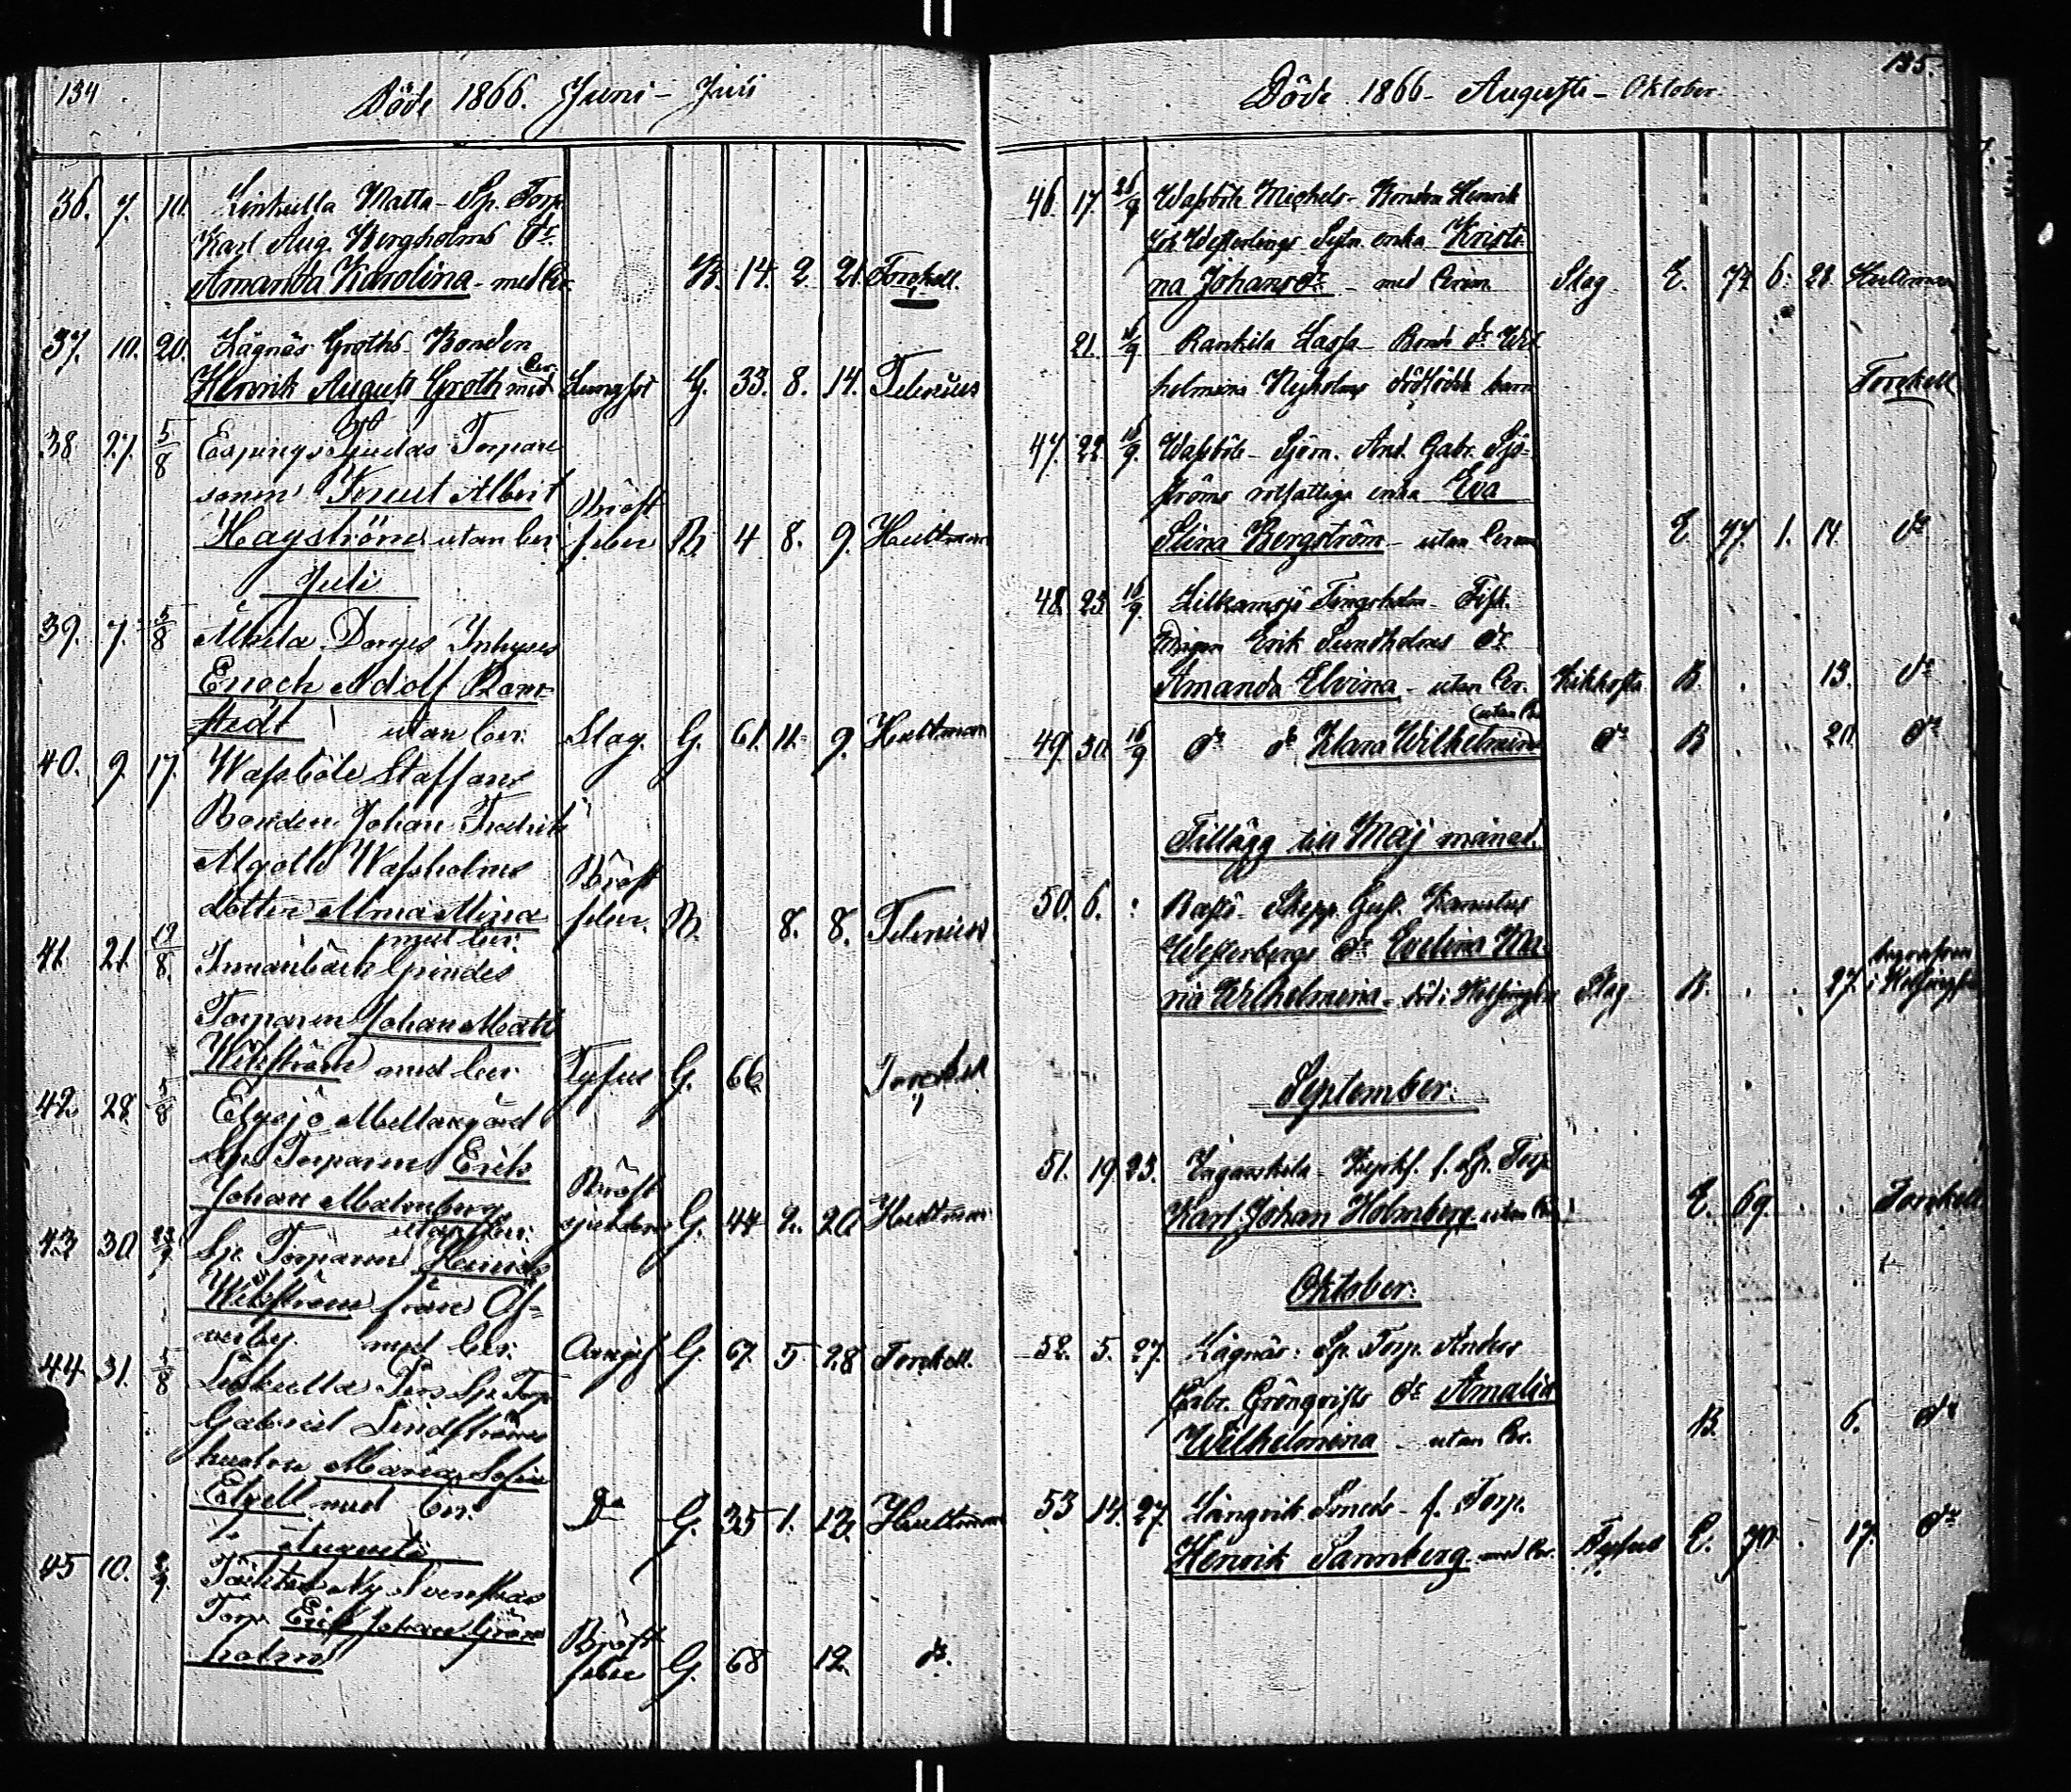 134
Döde 1866. Juni - Juli
36. 7. 10. Linkulla Matts - Sp. Torp.
Karl Aug. Bergholms dr.
Amanda Karolina - med Cer. B. 14. 2. 21. Forsell.
37. 10. 20. Lägnäs Groths Bonden
Henrik August Groth med Cer. Lungsot G. 33. 8. 14. Telenius
38 27. 5/8 Espings Torpare
sonen Knut Albert Bröst
Hagström utan cer. feber B. 4 8. 9. Hultman
Juli
39. 7. 5/8 Dorges Inhyses
Enoch Adolf
stedt utan cer. Slag. G. 61. 11. 9. Hultman
40. 9. 17. Wassböle Staffans
Bonden Johan Fredrik
Algoth Wassholms Bröst
dotter Alma Mina feber. B. 8. 8. Telenius
med cer.
41. 21. 12/8. Grindes
Torparen Johan Matts
Wikström med cer. Tyfus G. 66
42. 28. 5/8 Elgsjö Mellangård
Sp. Torparen Erik Bröst
Johan Malmberg G. 44 2. 20 Hultman
utan cer.
43 30. 23/9 Sp. Torparen Henrik
Wikström från Öf-
verby. med cer. G. 67. 5 28 Forsell.
44. 31. 5/8 Linkulla Pers Sp. Torp.
Gabriel Lindströms
hustru Maria Sofia
Elgell med cer. Do G. 35 1. 13. Hultman
Augusti
45 10. 2/9. Ny
Torp. Erik Johan Grön- Bröst
holm feber G. 68 12. do.
135.
Döde 1866 - Augusti - Oktober.
46. 17. 26/9 Wassböle Michels - Bonden Henrik
Joh. Westerlings Sytn. enka Kristi-
na Johansdr. - med Cerem. Slag E. 74 6. 28. Hultman
21. 16/9 Rankila Lassa Bond dr. Wil-
helmina Nyholms dödfödde barn Forsell
47. 22. 16/9. Wassböle - Sjöm. And. Gabr. Sjö-
ströms rotfattiga enka Eva
Stina Bergström - utan Cerem. E. 77. 1. 14. do
48. 25. 16/9. Lillramsjö Tingsholm - Fisk.
drängen Erik Sundholms dr.
Amanda Elvina - utan Cer. Kikhosta B. . . 13. do
49. 30. 16/9 do do Klara Wilhelmina utan Cer. do B. . . 20. do
Tillägg till Maj månad.
50. 6. Bastö - Skepp. Gust.
Westerbergs dr. Evelina Ma-
ria Wilhelmina - död i Helsingfors Slag B. . . 27. begrafven i Helsingfors
September.
51. 19. 23. Ingarskila - Kyrkf. f. Sp. Torp.
Karl Johan Holmberg utan Cer. E. 69. . . Forsell
Oktober.
52. 5. 27. Lägnäs: Sp. Torp. Anders
Gabr. Grönqvists dr. Amalia
Wilhelmina - utan Cer. B. 6. do
53 14. 27. Långvik Smeds - f. Torp.
Henrik Sannberg med Cer. Tyfus E. 70. . 17. do